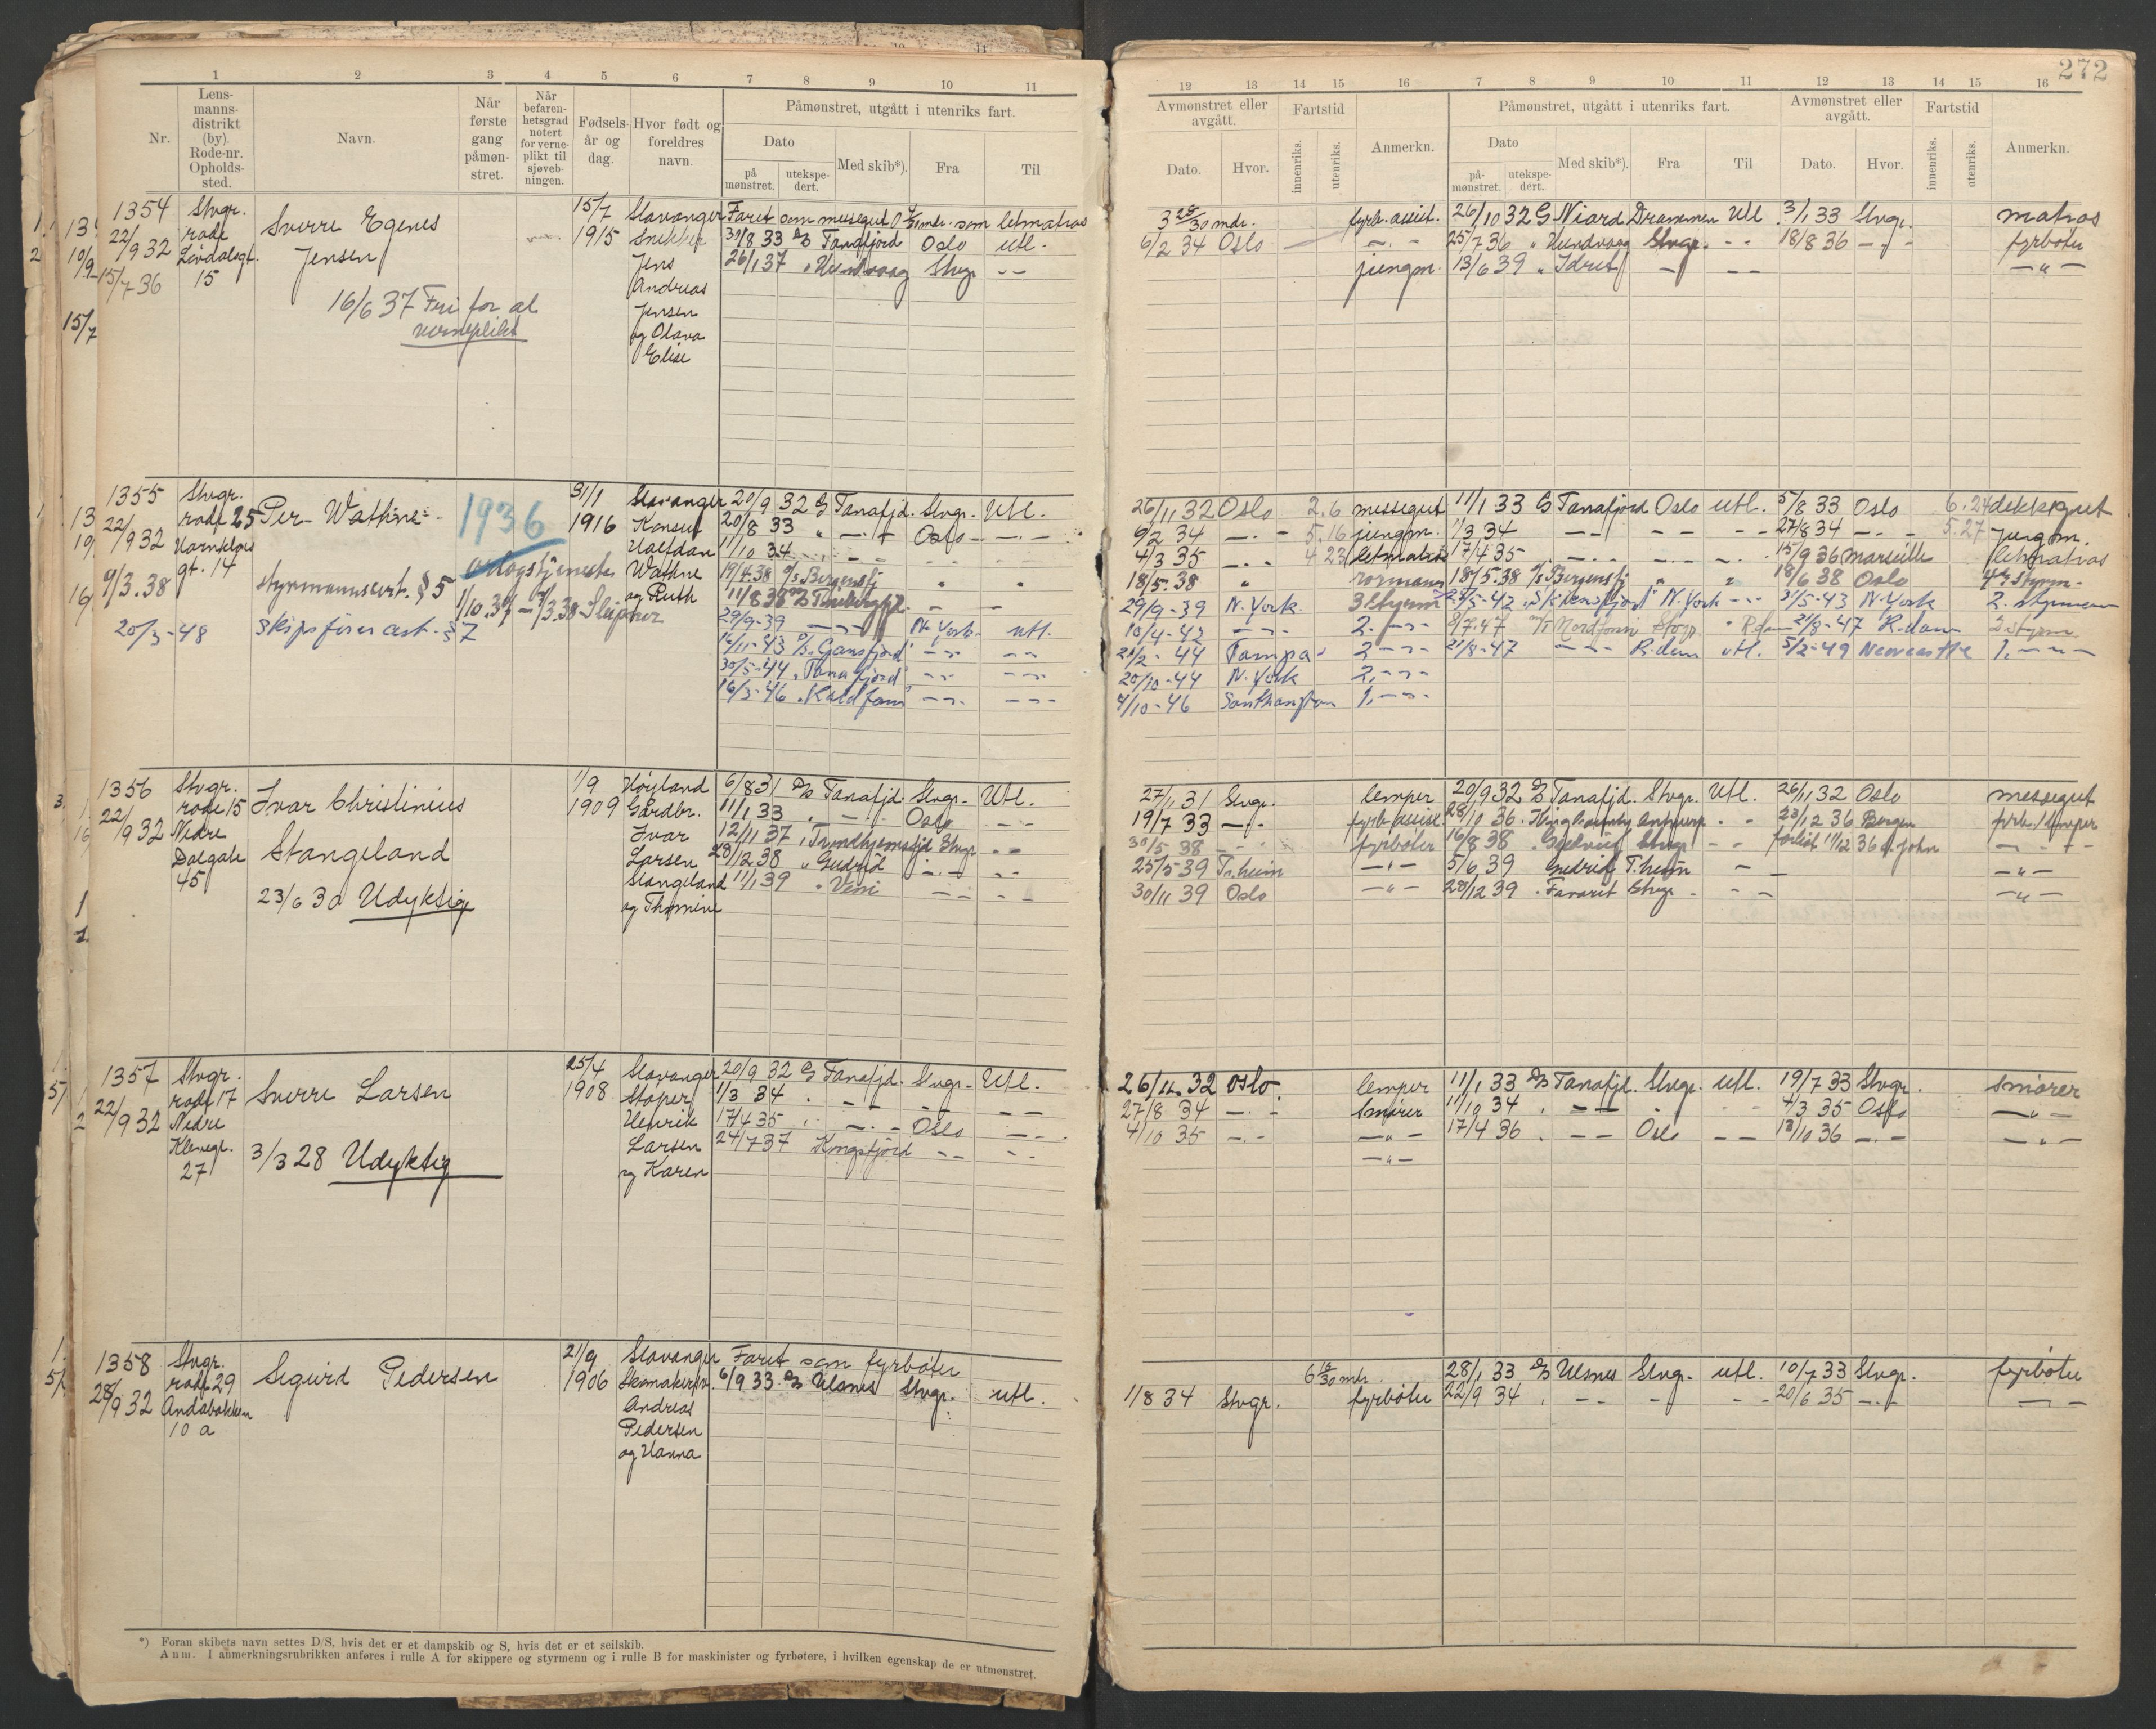 272
1 2 3 4 5 6 7 8 9 10 11
Nr.
Lens-
manns-
distrikt
(by).
Rode-nr.
Opholds-
sted.
Navn.
Når
første
gang
påmøn-
stret.
Når
befaren-
hetsgrad
notert
for verne-
plikt til
sjøveb-
ningen.
Fødsels-
år og
dag.
Hvor født og
foreldres
navn.
Påmønstret, utgått i utenriks fart.
Dato
på
mønstret.
utekspe-
dert.
Med skib*).
Fra
Til
12 13 14 15 16 7 8 9 10 11 12 13 14 15 16
Avmønstret eller
avgått.
Dato.
Hvor.
Fartstid
innenriks.
utenriks.
Anmerkn.
Påmønstret, utgått i utenriks fart.
Dato
på-
mønstret.
utekspe-
dert.
Med skib*).
Fra
Til
Avmønstret eller
avgått.
Dato.
Hvor.
Fartstid
innenriks.
utenriks.
Anmerkn.
1354
22/9 32
15/7 36
Stvgr.
rode
15
Sverre Egenes
Jensen
16/6 37 Fri for al
verneplikt
15/7
1915
Stavanger
Snekker
Jens
Andreas
Jensen
og Olava
Elise
Faret som messegut som letmatros
30/8 33 Tanafjord Oslo utl.
26/1 37 Hundvaag Stvgr. - -
3 28/30 mdr. fyrb. assist. 26/10 32 Niard Drammen Utl 3/1 33 Stvgr. matros
6/2 34 Oslo - - 25/7 36 " Hundvaag Stvgr. - - 18/8 36 - - fyrbøter
jungm. 13/6 39 " Idret - - - - " -
1355
22/9 32
9/3.38
20/3-48
Stvgr.
rode 25
gt. 14
Per Wathne
1936
styrmannscert. § 5
1/10.36 - 1/3.38 Sleipner
skipsfører cert. § 7
31/1
1916
Stavanger
Konsul
Halfdan
Wathne
og Ruth
20/9 32 Tanafjd. Stvgr. Utl.
20/8 33 " - - Oslo - -
11/10 34 - - - -
19/4.38 Bergensfj " "
11/8 38 - -
29/9-39 - - N. York utl.
16/11-43 "Gansfjord" - - - -
30/5-44 "Tanafjord" - - - -
16/3-46 - - - -
26/11 32 Oslo 2.6 messegut 11/1 33 Tanafjord Oslo utl. 5/8 33 Oslo 6.24 dekksgut
9/2 34 - - 5.16 jungm. 1/3 34 - - - - - - 27/8 34 - - 5.27 jungm.
4/3 35 - - 4 23 letmatros 17/4 35 - - - - - - 15/9 36 Marseille letmatros
18/5.38 " rormann 18/5.38 Bergensfj " " 18/6 38 Oslo 4de styrm.
29/9-39 N. York 3 styrm 42 "Skiensfjord" N. York - - 31/5-43 N. York 2. styrmann
10/4-42 - - 2. - - 47 Stvgr R.dam 21/8-47 R.dam 2 styrm.
2-44 Tampa 2 - - 21/8-47 - - R.dam utl. 5/2-49 Newcastle 1. - -
20/10-44 N. York 2. - -
4/10-46 1. - -
1356
22/9 32
Stvgr.
rode 15
Nedre
Dalgate
45
Ivar Christinius
Stangeland
23/6 30 Udyktig
1/9
1909
Høyland
Gårdbr.
Ivar
Larsen
Stangeland
og Thomine
6/8 31 Tanafjd. Stvgr. Utl.
11/1 33 " - - Oslo - -
12/11 37 " Trondhjemsfjd Stvgr - -
28/12 38 " Gudrid - - - -
11/1 39 " Veni - - - -
27/11 31 Stvgr. lemper 20/9 32 Tanafjd. Stvgr. Utl. 26/11 32 Oslo messegut
19/7 33 - - fyrb. assist. 28/10 36 Antwerp. - - 23/12 36 Bergen fyrb./lemper
30/5 38 - - fyrbøter 16/8 38 Stvgr - - forlist 11/12 36 - - -
25/5 39 Tr.heim - " - 5/6 39 Gudrid T.heim - - - " -
30/11 39 Oslo - " - 28/12 39 Favorit Stvgr - - - - " -
1357
22/9 32
Stvgr.
rode 17
Nedre
Klevegt.
27
Sverre Larsen
3/3 28 Udyktig
25/4
1908
Stavanger
Støper
Henrik
Larsen
og Karen
20/9 32 Tanafjd. Stvgr. Utl.
1/3 34 " - - - - -
17/4 35 " - - Oslo - -
24/7 37 Kongsfjord - - - -
26/11 32 Oslo. lemper 11/1 33 Tanafjd. Stvgr. utl. 19/7 33 Stvgr. smører
27/8 34 - - smører 11/10 34 " - - - - - 4/3 35 Oslo - " -
4/10 35 - - - " - 17/4 36 " - - Oslo - - 13/10 36 - - - " -
- " -
1358
28/9 32
Stvgr.
rode 29
Andabakken
10 a
Sigurd Pedersen
21/9
1906
Stavanger
Skomakersv.
Andreas
Pedersen
og Hanna
Faret som fyrbøter
6/9 33 Ulsnes Stvgr. utl.
6 16/30 mdr. 28/1 33 Ulsnes Stvgr. utl. 10/7 33 Stvgr. fyrbøter
11/8 34 Stvgr. fyrbøter 22/9 34 " - - - - - 20/6 35 - - - -
*) Foran skibets navn settes D/S, hvis det er et dampskib og S, hvis det er et seilskib.
Anm. I anmerkningsrubrikken anføres i rulle A for skippere og styrmenn og i rulle B for maskinister og fyrbøtere, i hvilken egenskap de er utmønstret.